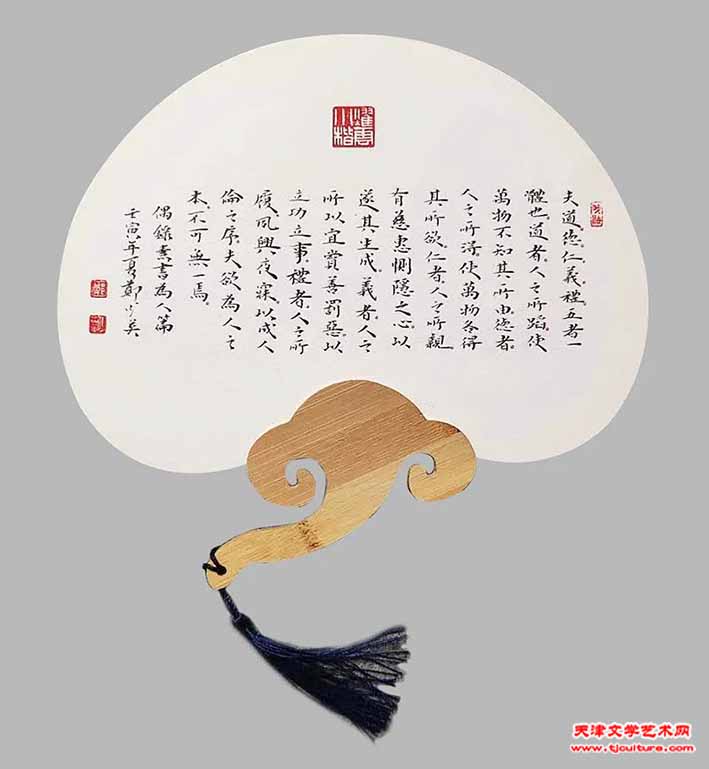 夫道德仁義禮五者一
體也道者人之所蹈使
萬物不知其所由德者
人之所得使萬物各得
其所欲仁者人之所親
有慈惠惻隱之心以
遂其生成義者人之
所以宜賞善罰惡以
立功立事禮者人之所
履夙興夜寐以成人
倫之序夫欲為人之
本不可無一焉
偶錄素書為人第
壬寅年夏鄭少英
天津文学艺术网
www.tjculture.com